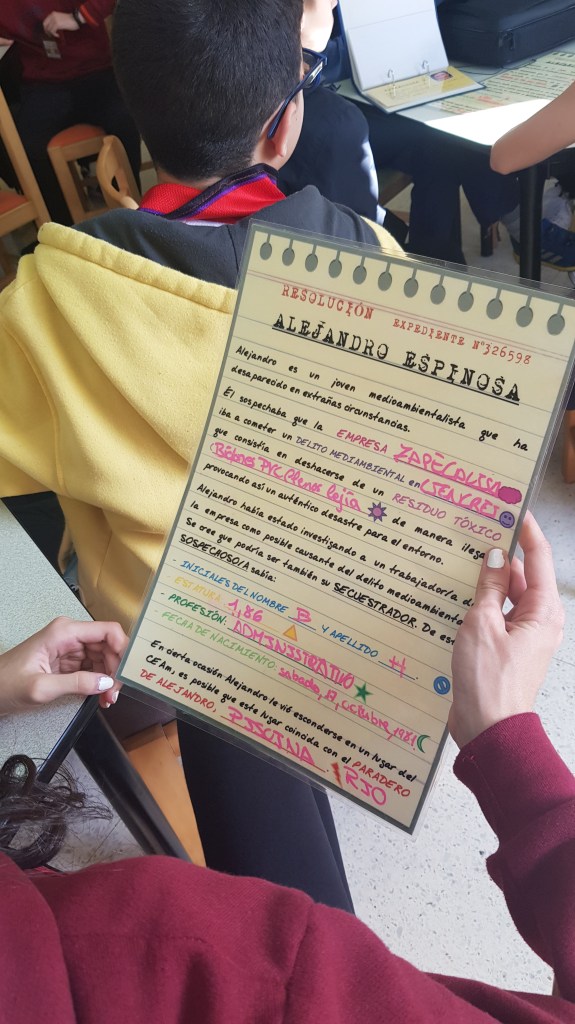 RESOLUCIÓN EXPEDIENTE Nº326598
ALEJANDRO ESPINOSA
Alejandro es un joven medioambientalista que ha
desaparecido en extrañas circunstancias.
Él sospechaba que la EMPRESA ZAPECALISA
iba a cometer un DELITO MEDIAMBIENTAL en LIENCRES
que consistía en deshacerse de un RESIDUO TÓXICO
Bidones PVC llenos lejía de manera ilegal
provocando así un auténtico desastre para el entorno.
Alejandro había estado investigando a un trabajador/a de
la empresa como posible causante del delito medioambiental.
Se cree que podría ser también su SECUESTRADOR. De este
SOSPECHOSO/A sabía:
- INICIALES DEL NOMBRE B Y APELLIDO H.
- ESTATURA: 1,86
- PROFESIÓN: ADMINISTRATIVO
- FECHA DE NACIMIENTO: sabado, 17, octubre, 1981
En cierta ocasión Alejandro le vió esconderse en un lugar del
CEAm, es posible que este lugar coincida con el PARADERO
DE ALEJANDRO, PISCINA RIO